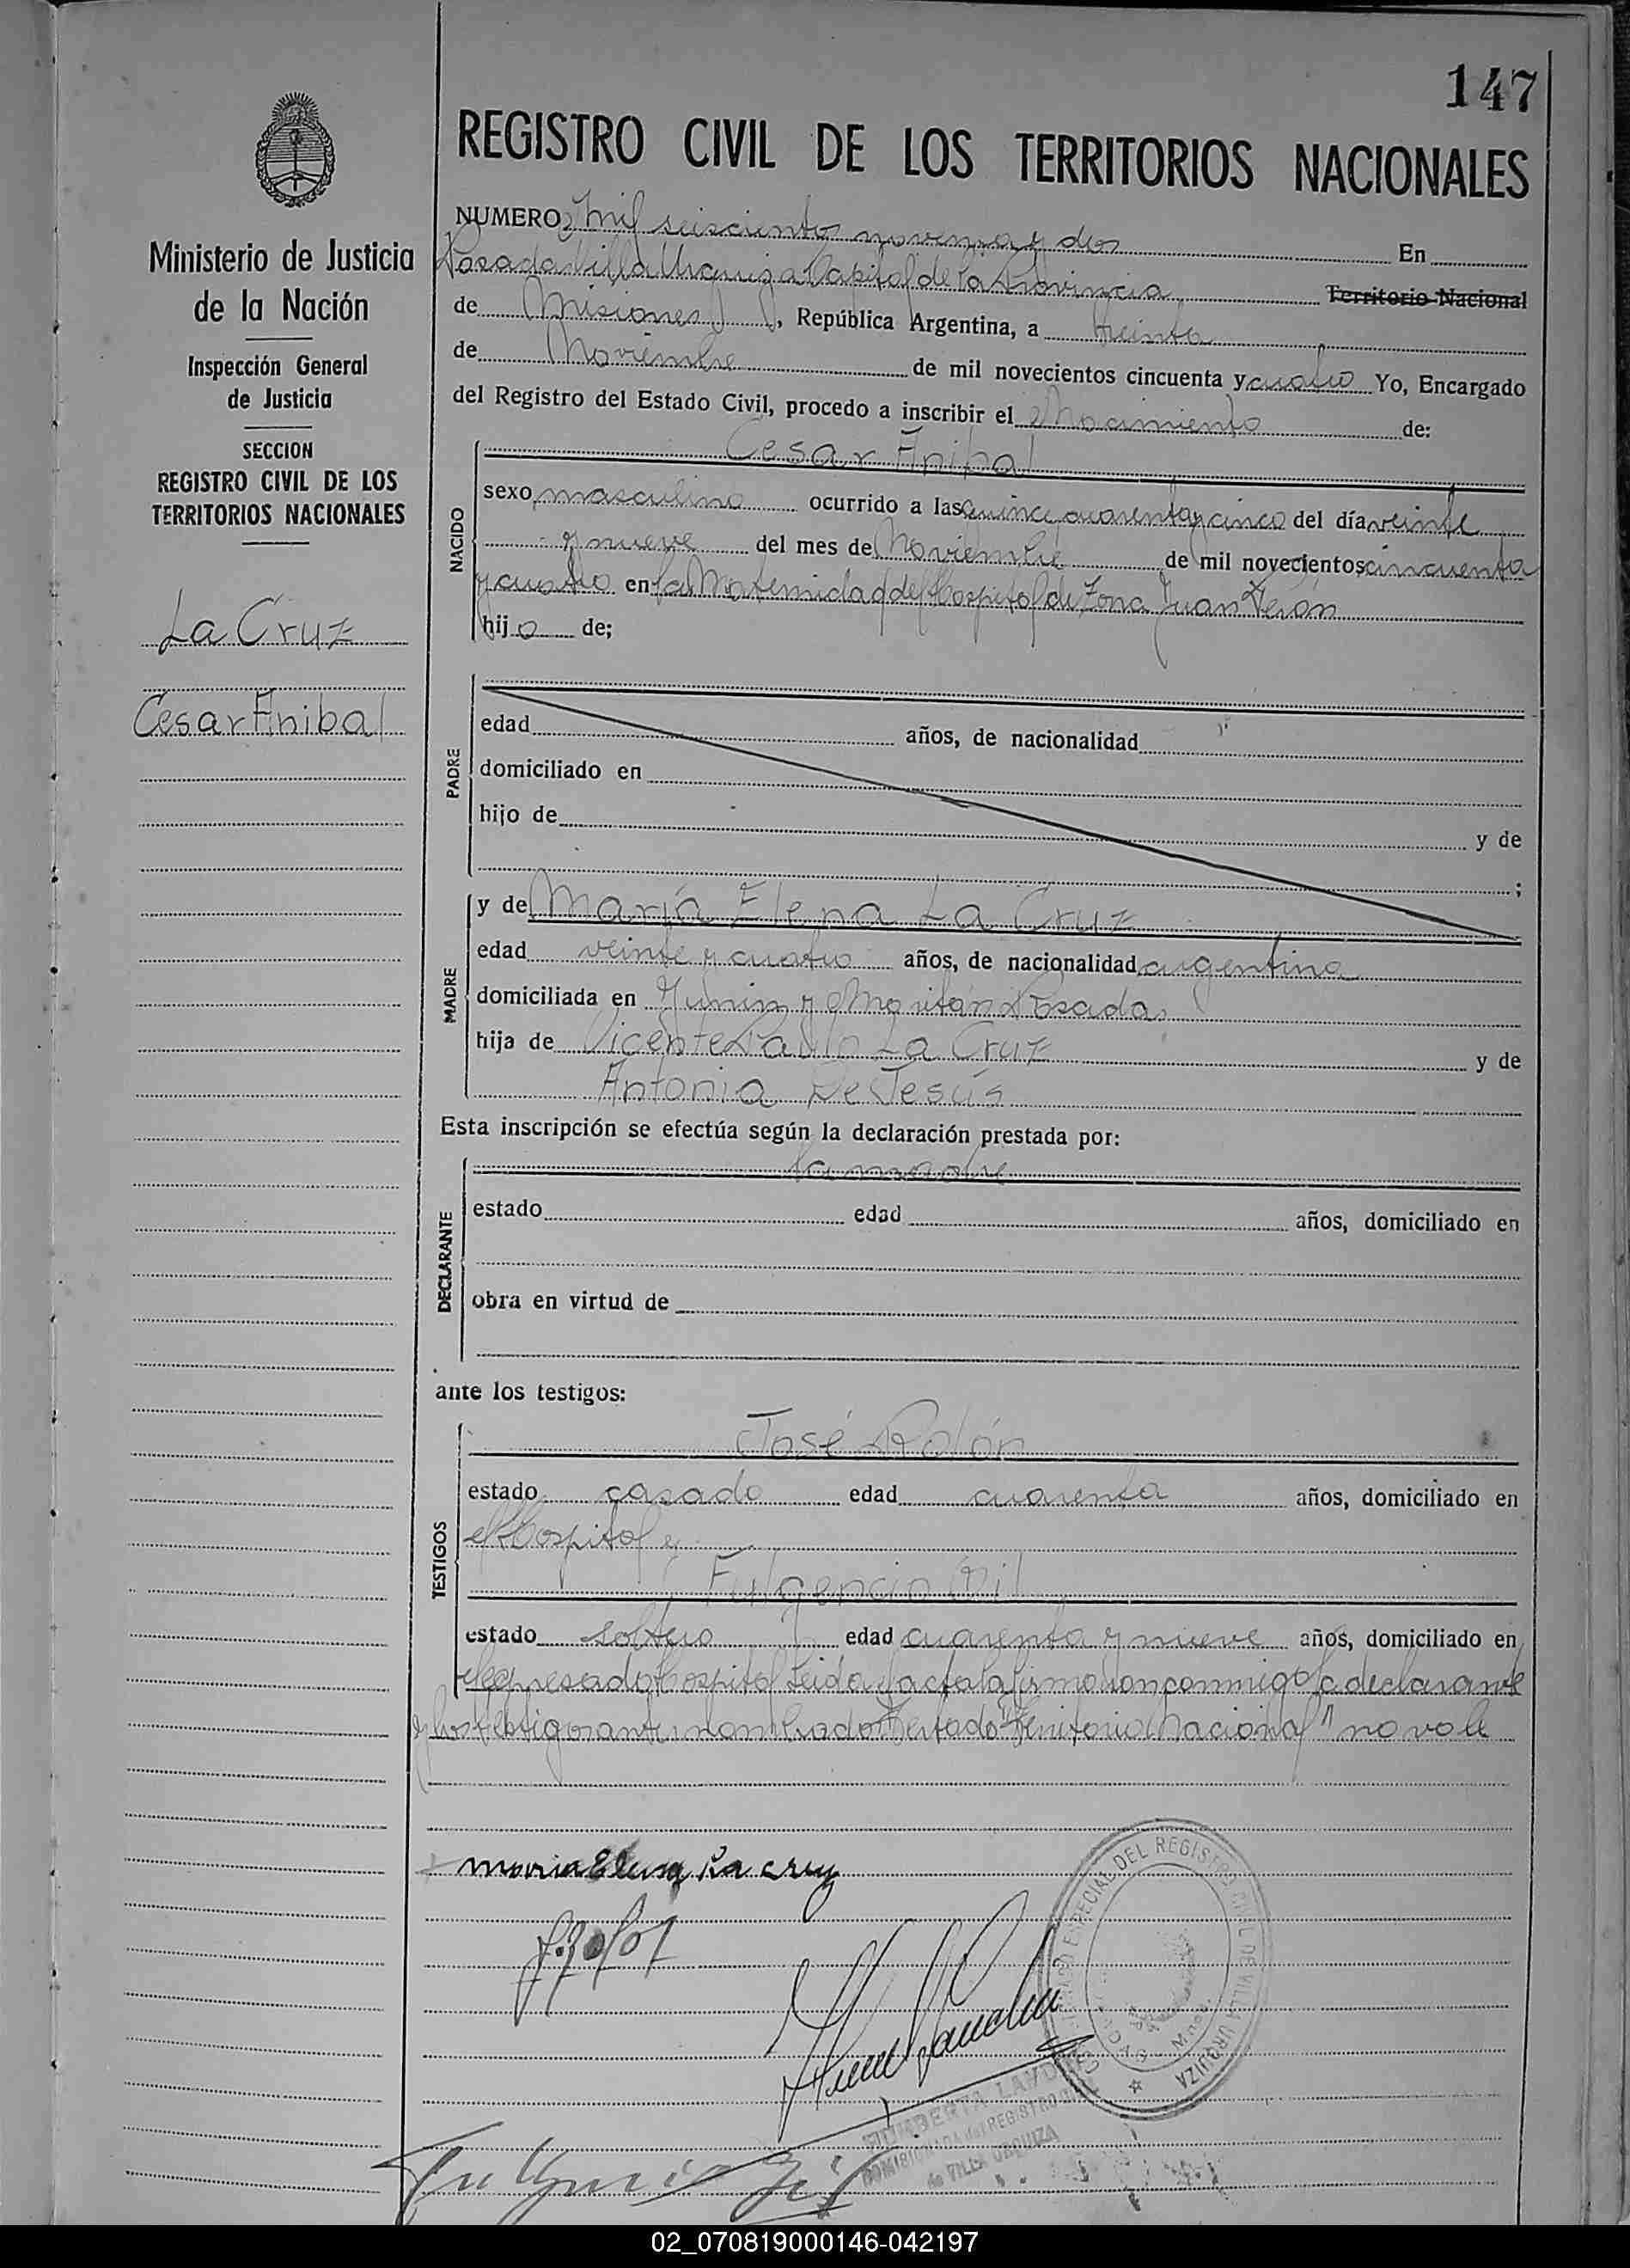 147
REGISTRO CIVIL DE LOS TERRITORIOS NACIONALES
Ministerio de Justicia
de la Nación
Inspección General
de Justicia
SECCION
REGISTRO CIVIL DE LOS
TERRITORIOS NACIONALES
La Cruz
Cesar Anibal
NUMERO mil seiscientos noventa y dos En
Posadas Villa Urquiza Capital de la Provincia Territorio Nacional
de Misiones, República Argentina, a treinta
de Noviembre de mil novecientos cincuenta y cuatro Yo, Encargado
del Registro del Estado Civil, procedo a inscribir el Nacimiento de:
NACIDO
Cesar Anibal
sexo masculino ocurrido a las quince cuarenta y cinco del día veinte
y nueve del mes de Noviembre de mil novecientos cincuenta
y cuatro en la Maternidad del Hospital de Zona Juan Perón
hijo de;
PADRE
edad años, de nacionalidad
domiciliado en
hijo de y de
;
MADRE
y de María Elena La Cruz
edad veinte y cuatro años, de nacionalidad argentina
domiciliada en Junin y Posadas
hija de Vicente Paulo La Cruz y de
Antonia De Jesús
Esta inscripción se efectúa según la declaración prestada por:
DECLARANTE
la madre
estado edad años, domiciliado en
obra en virtud de
ante los testigos:
TESTIGOS
José Rolón
estado casado edad cuarenta años, domiciliado en
el Hospital y
Fulgencio Gil
estado soltero edad cuarenta y nueve años, domiciliado en
el expresado Hospital Leida el acta la firmaron conmigo la declarante
y los testigos antes nombrados Testado "Territorio Nacional" no vale
Maria Elena La Cruz
DEL REGISTRO CIVIL DE VILLA URQUIZA
REGISTRO
de VILLA URQUIZA
Fulgencio Gil
02_070819000146-042197